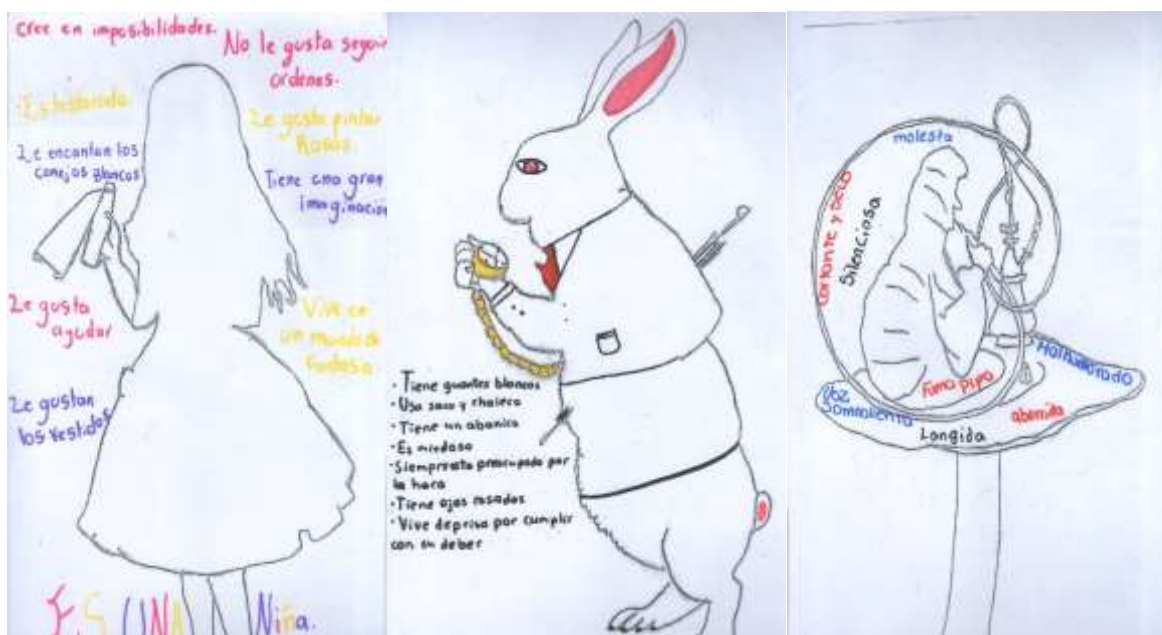 Cree en imposibilidades.
No le gusta seguir
ordenes.
Es testaruda.
Le gusta pintar
Rosas.
Le encantan los
conejos Blancos
Tiene una gran
imaginación
Le gusta
ayudar
Vive en
un mundo de
fantasia.
Le gustan
los vestidos
ES UNA Niña.
• Tiene guantes blancos
• Usa saco y chaleco
• Tiene un abanico
• Es miedoso
• Siempre esta preocupado por
la hora
• Tiene ojos rosados
• Vive deprisa por cumplir
con su deber
molesta
cortante y seca
Silenciosa
Fuma pipa
Malhumorada
voz
Somnolienta
aburrida
Langida